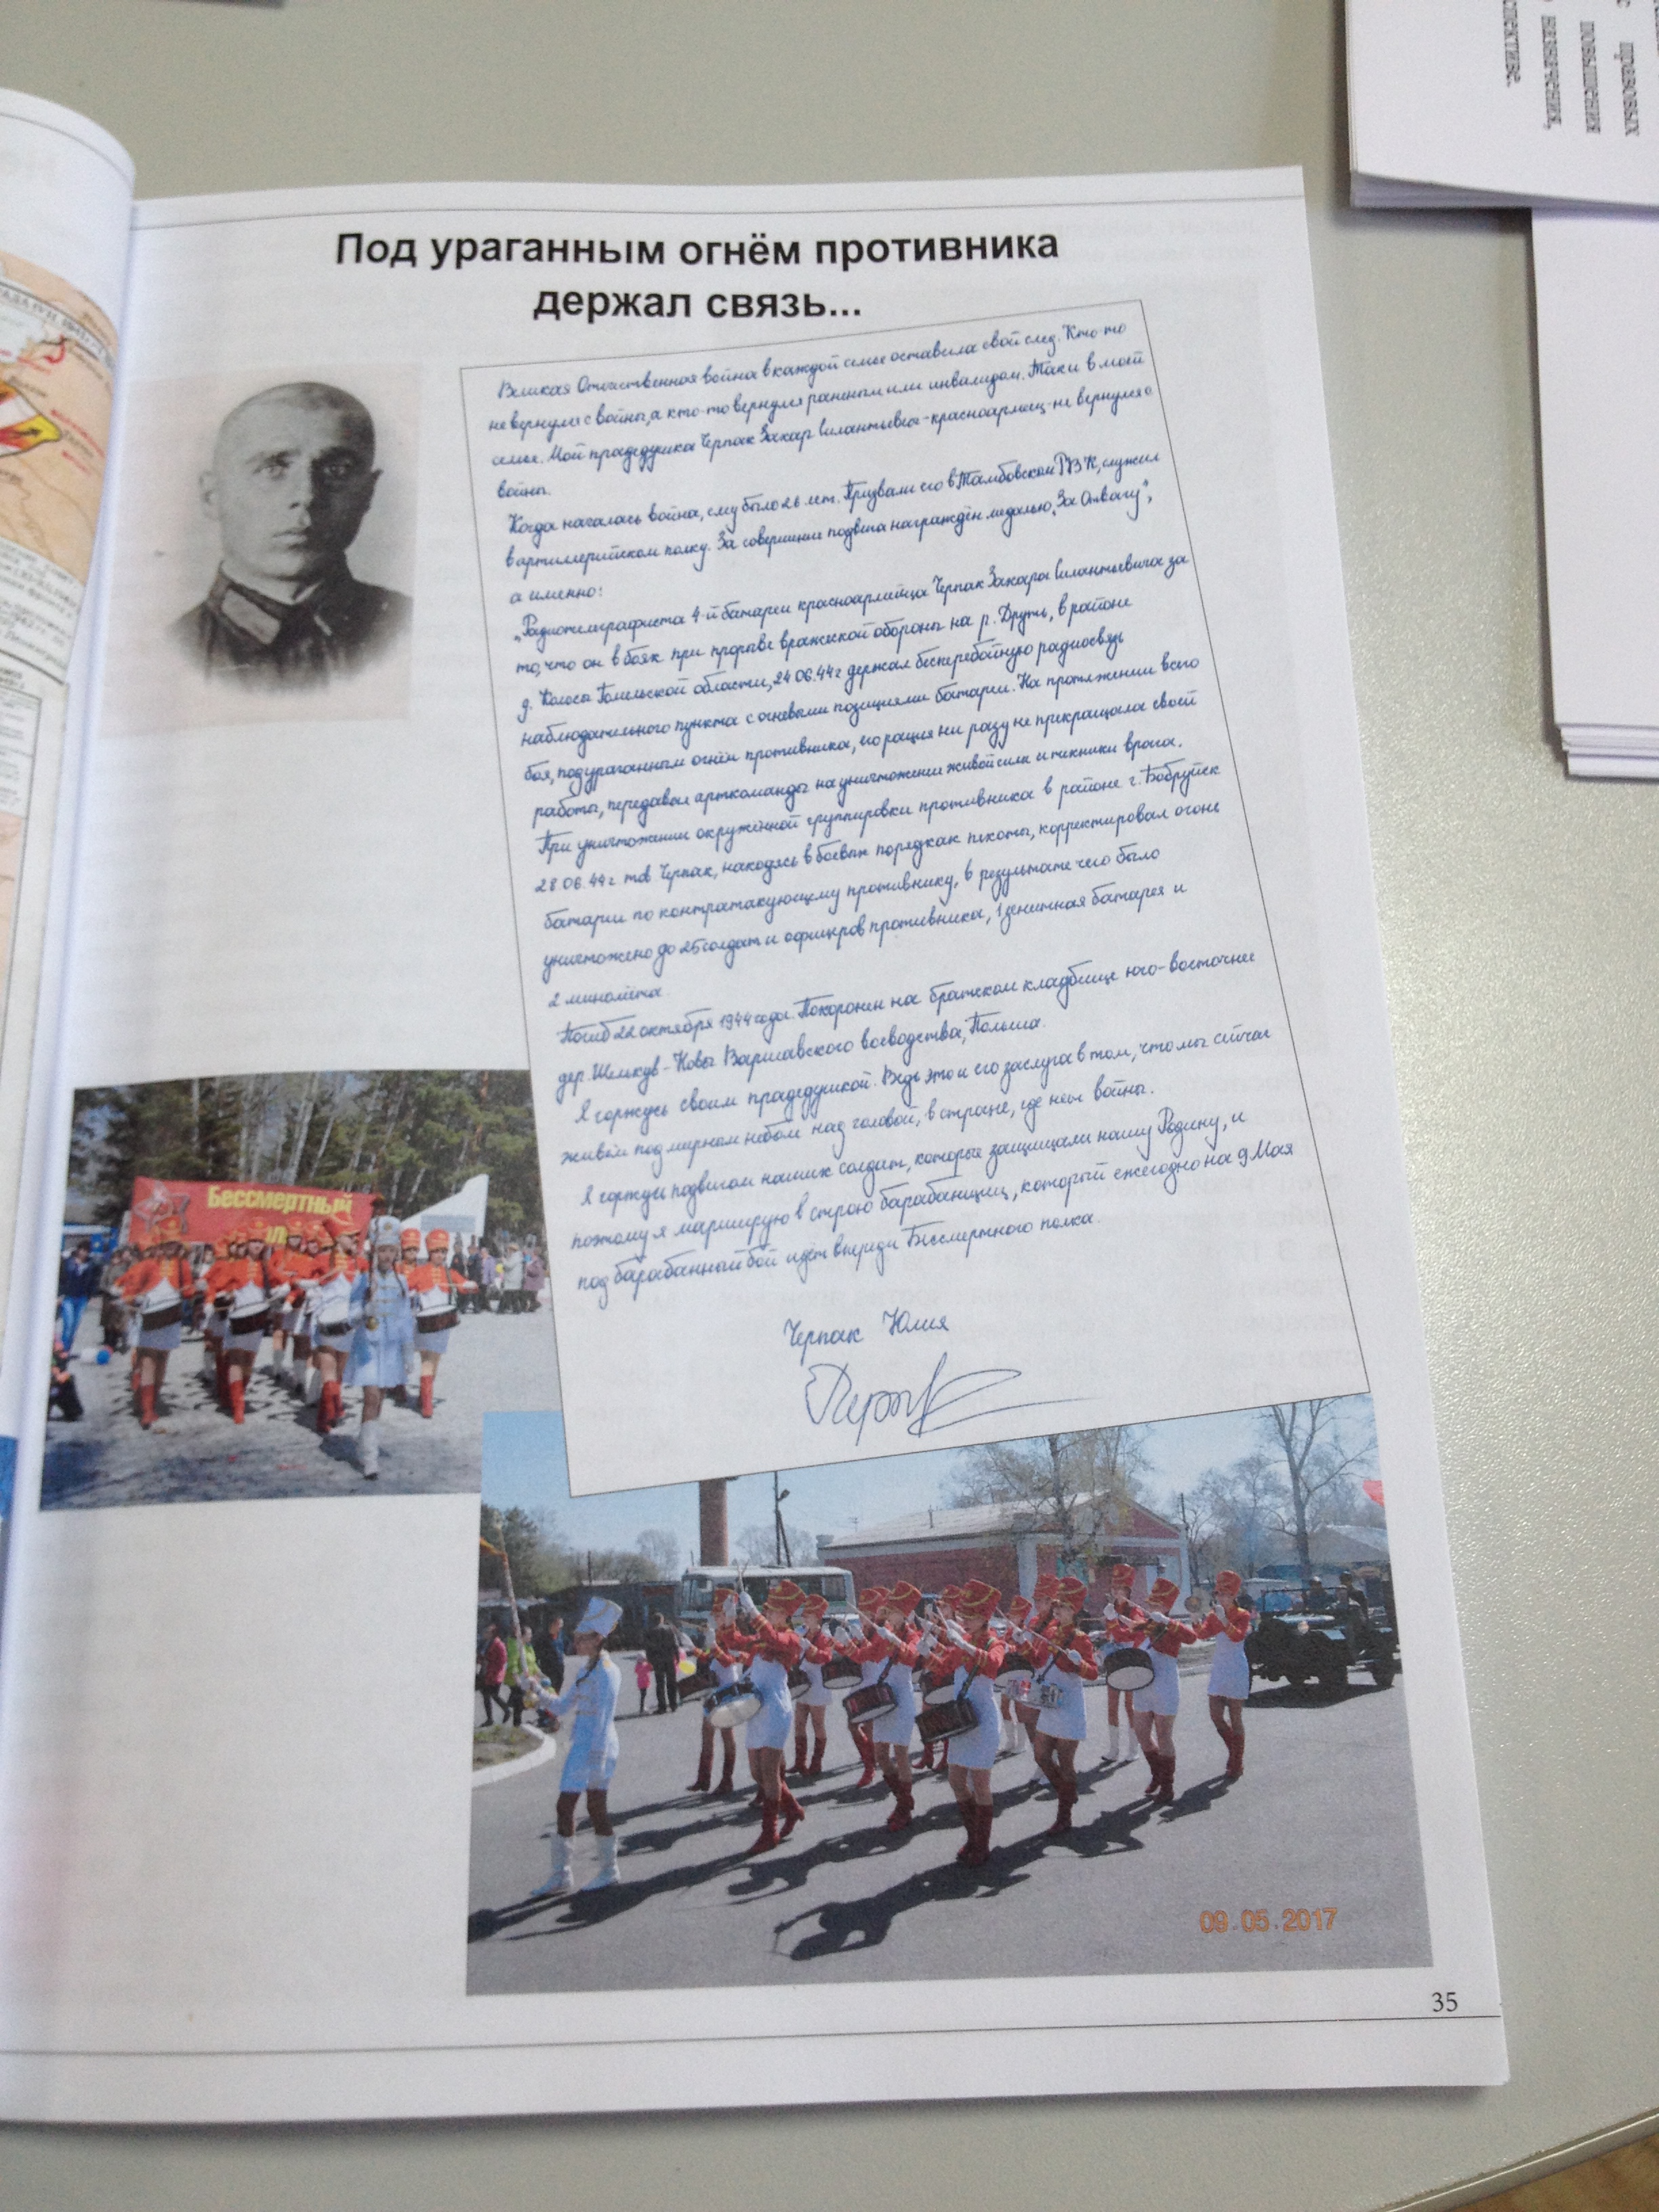 Под ураганным огнём противника
держал связь...
Великая Отечественная война в каждой семье оставила свой след. Кто то
не вернулся с войны, а кто-то вернулся раненым или инвалидом. Так и в моей
семье. Мой прадедушка Черпак Захар Силантьевич-красноармеец-не вернулся с
войны.
Когда началась война, ему было 26 лет. Призвали его в Тамбовском РВК, служил
в артиллерийском полку. За совершение подвига награждён медалью „За Отвагу",
а именно:
„Радиотелеграфиста 4-й батареи красноармейца Черпак Захара Силантьевича за
то, что он в боях при прорыве вражеской обороны на р. Друть, в районе
д. Колосы Гомельской области, 24 06.44 г держал бесперебойную радиосвязь
наблюдательного пункта с огневыми позициями батареи. На протяжении всего
боя, под ураганным огнём противника, его рация ни разу не прекращала своей
работы, передавая арткоманды на уничтожение живой силы и техники врага.
При уничтожении окружённой группировки противника в районе г. Бобруйск
28 06.44 г. тов Черпак, находясь в боевых порядках пехоты, корректировал огонь
батареи по контратакующему противнику, в результате чего было
уничтожено до 25 солдат и офицеров противника, 1 зенитная батарея и
2 миномёта.
Погиб 22 октября 1944 года. Похоронен на братском кладбище юго-восточнее
дер. Шелькув-Новы Варшавского воеводства, Польша.
Я горжусь своим прадедушкой. Ведь это и его заслуга в том, что мы сейчас
живём под мирным небом над головой, в стране, где нет войны.
Я горжусь подвигом наших солдат, которые защищали нашу Родину, и
поэтому я марширую в строю барабанщиц, который ежегодно на 9 Мая
под барабанный бой идёт впереди Бессмертного полка.
Черпак Юлия
Бессмертный
09.05.2017
35
правовых
повышения